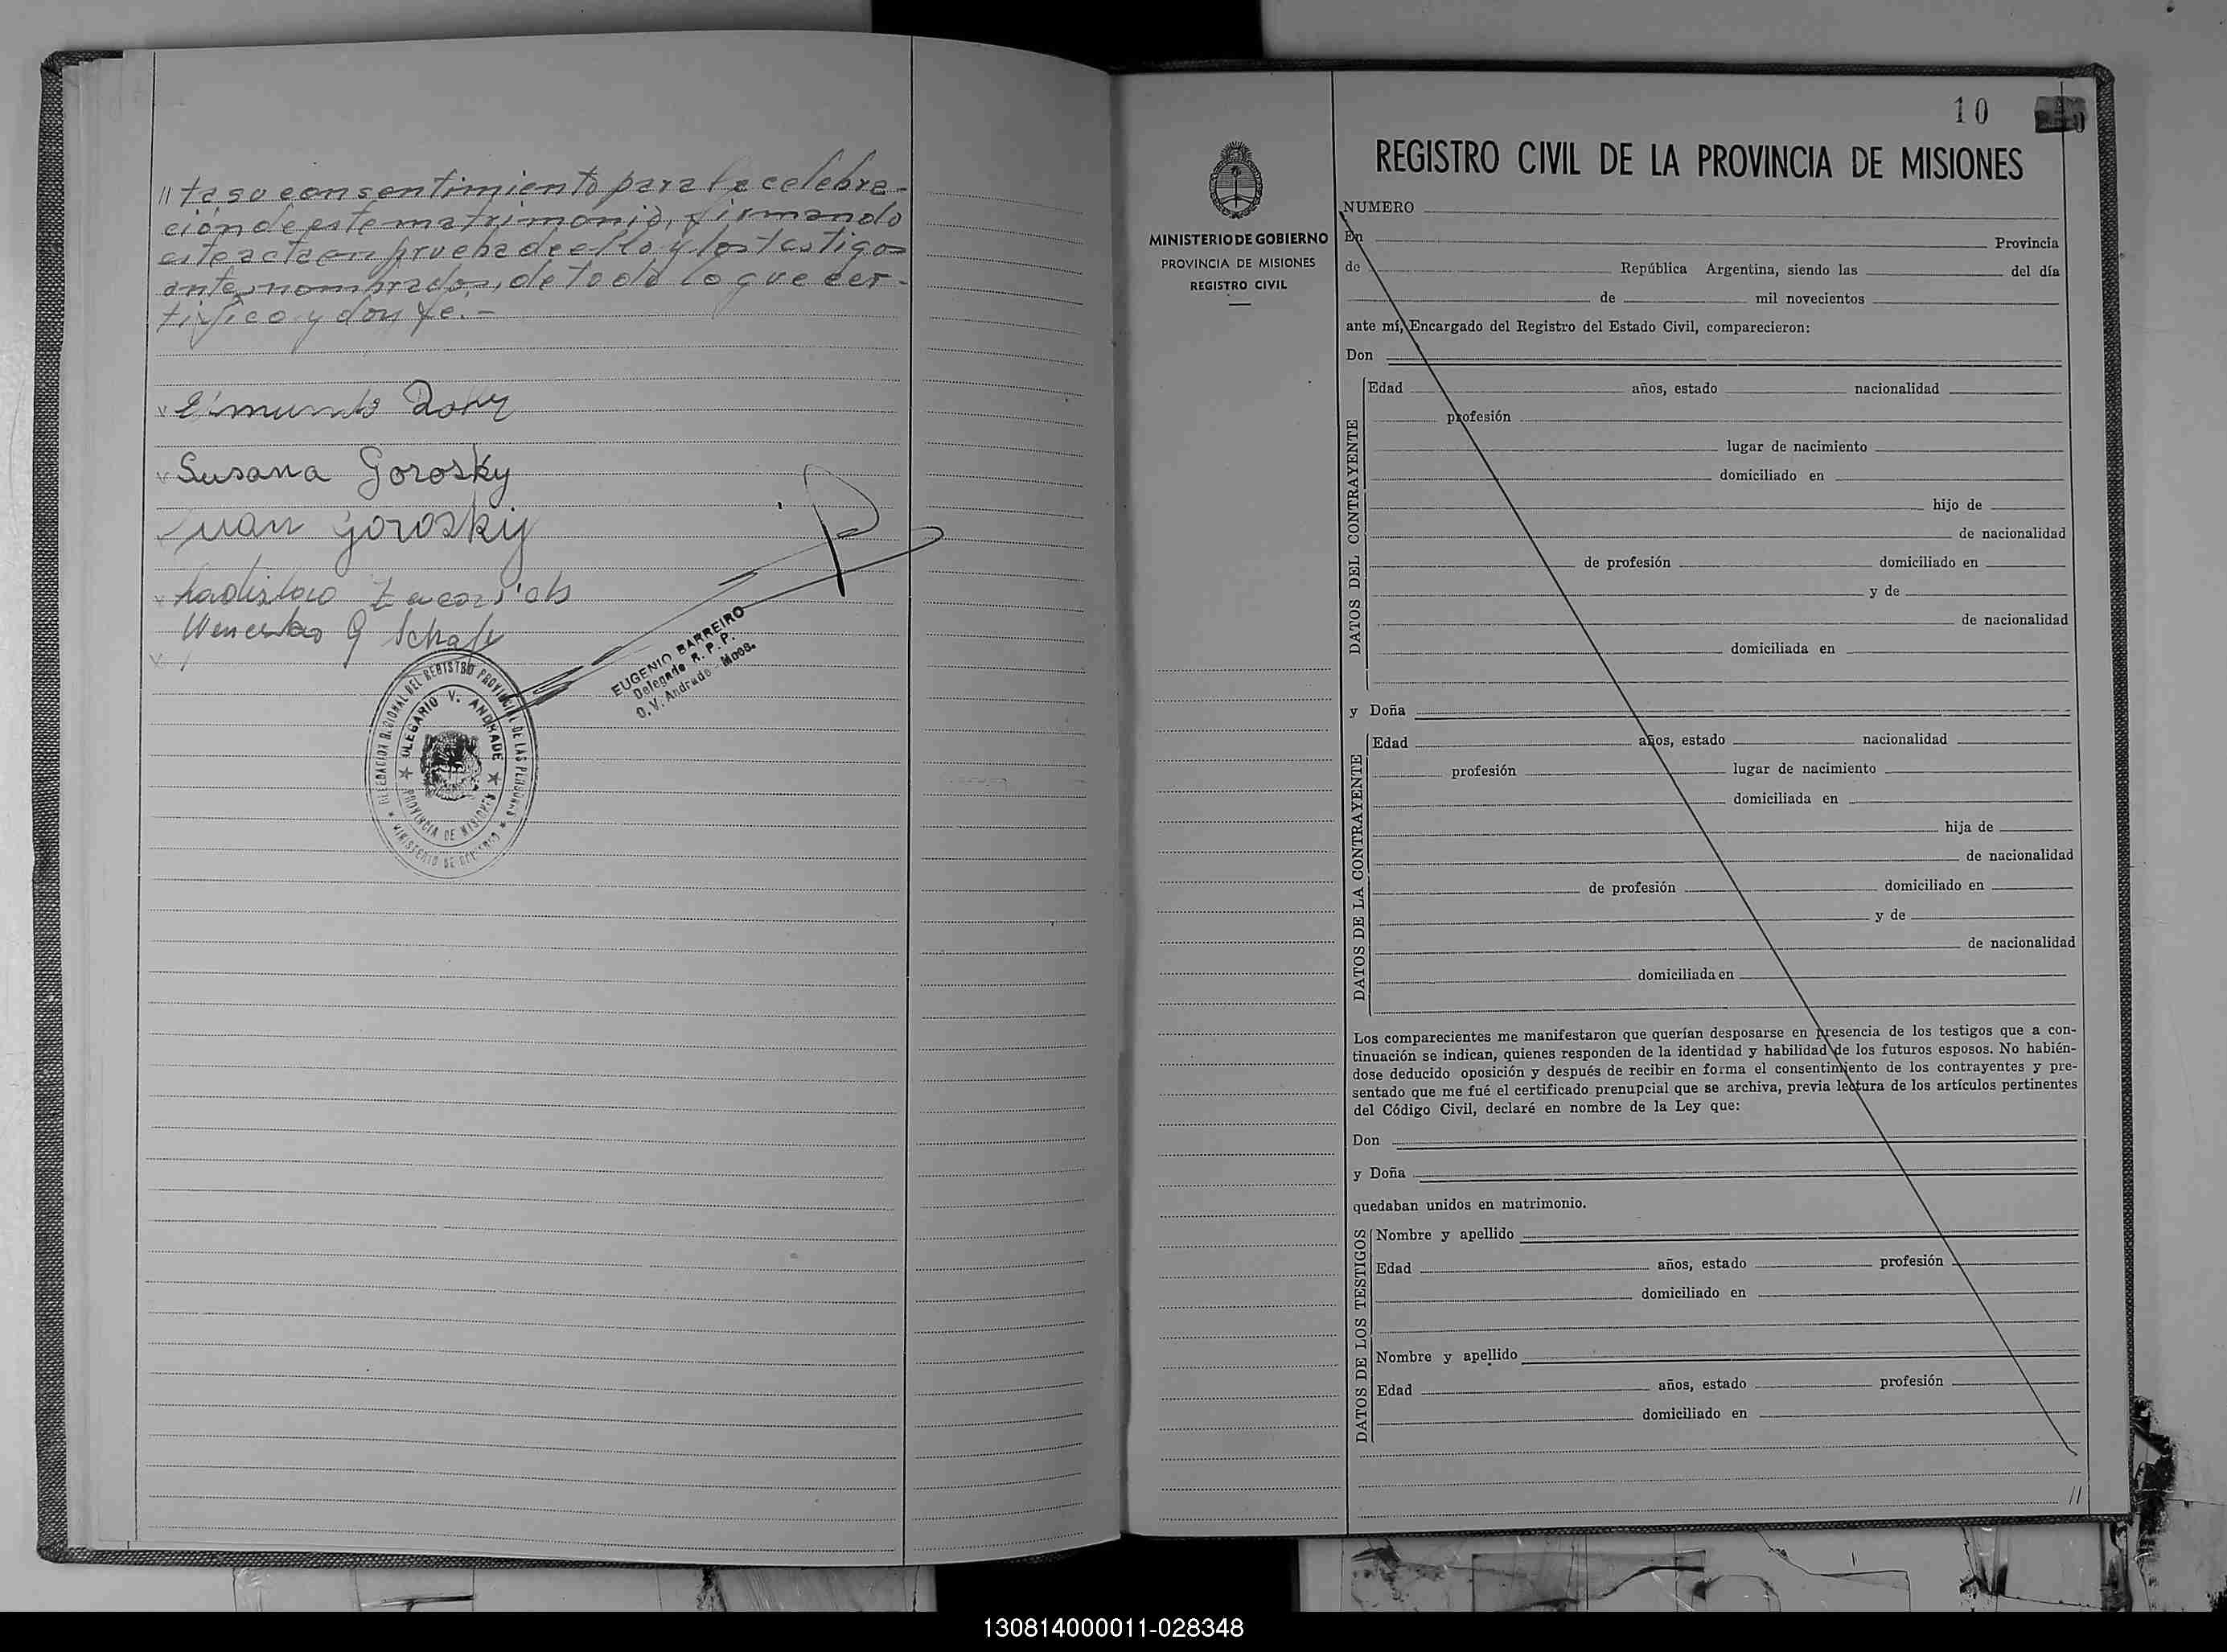 // ta su consentimiento para la celebra-
ción de este matrimonio, firmando
este acta en prueba de ello y los testigos
antes nombrados, de todo lo que cer-
tifico y doy fe.-
Susana Gorosky
Juan Gorosky
Ladislao
Wenceslao G
EUGENIO BARREIRO
Delegado R. P. P.
O. V. Andrade - Mnes.
DELEGACION REGIONAL DEL REGISTRO PROVINCIAL DE LAS PERSONAS
OLEGARIO V. ANDRADE
PROVINCIA DE MISIONES
MINISTERIO DE GOBIERNO
10
MINISTERIO DE GOBIERNO
PROVINCIA DE MISIONES
REGISTRO CIVIL
REGISTRO CIVIL DE LA PROVINCIA DE MISIONES
NUMERO
En Provincia
de República Argentina, siendo las del día
de mil novecientos
ante mí, Encargado del Registro del Estado Civil, comparecieron:
Don
DATOS DEL CONTRAYENTE
Edad años, estado nacionalidad
profesión
lugar de nacimiento
domiciliado en
hijo de
de nacionalidad
de profesión domiciliado en
y de
de nacionalidad
domiciliada en
y Doña
DATOS DE LA CONTRAYENTE
Edad años, estado nacionalidad
profesión lugar de nacimiento
domiciliada en
hija de
de nacionalidad
de profesión domiciliado en
y de
de nacionalidad
domiciliada en
Los comparecientes me manifestaron que querían desposarse en presencia de los testigos que a con-
tinuación se indican, quienes responden de la identidad y habilidad de los futuros esposos. No habién-
dose deducido oposición y después de recibir en forma el consentimiento de los contrayentes y pre-
sentado que me fué el certificado prenupcial que se archiva, previa lectura de los artículos pertinentes
del Código Civil, declaré en nombre de la Ley que:
Don
y Doña
quedaban unidos en matrimonio.
DATOS DE LOS TESTIGOS
Nombre y apellido
Edad años, estado profesión
domiciliado en
Nombre y apellido
Edad años, estado profesión
domiciliado en
//
130814000011-028348